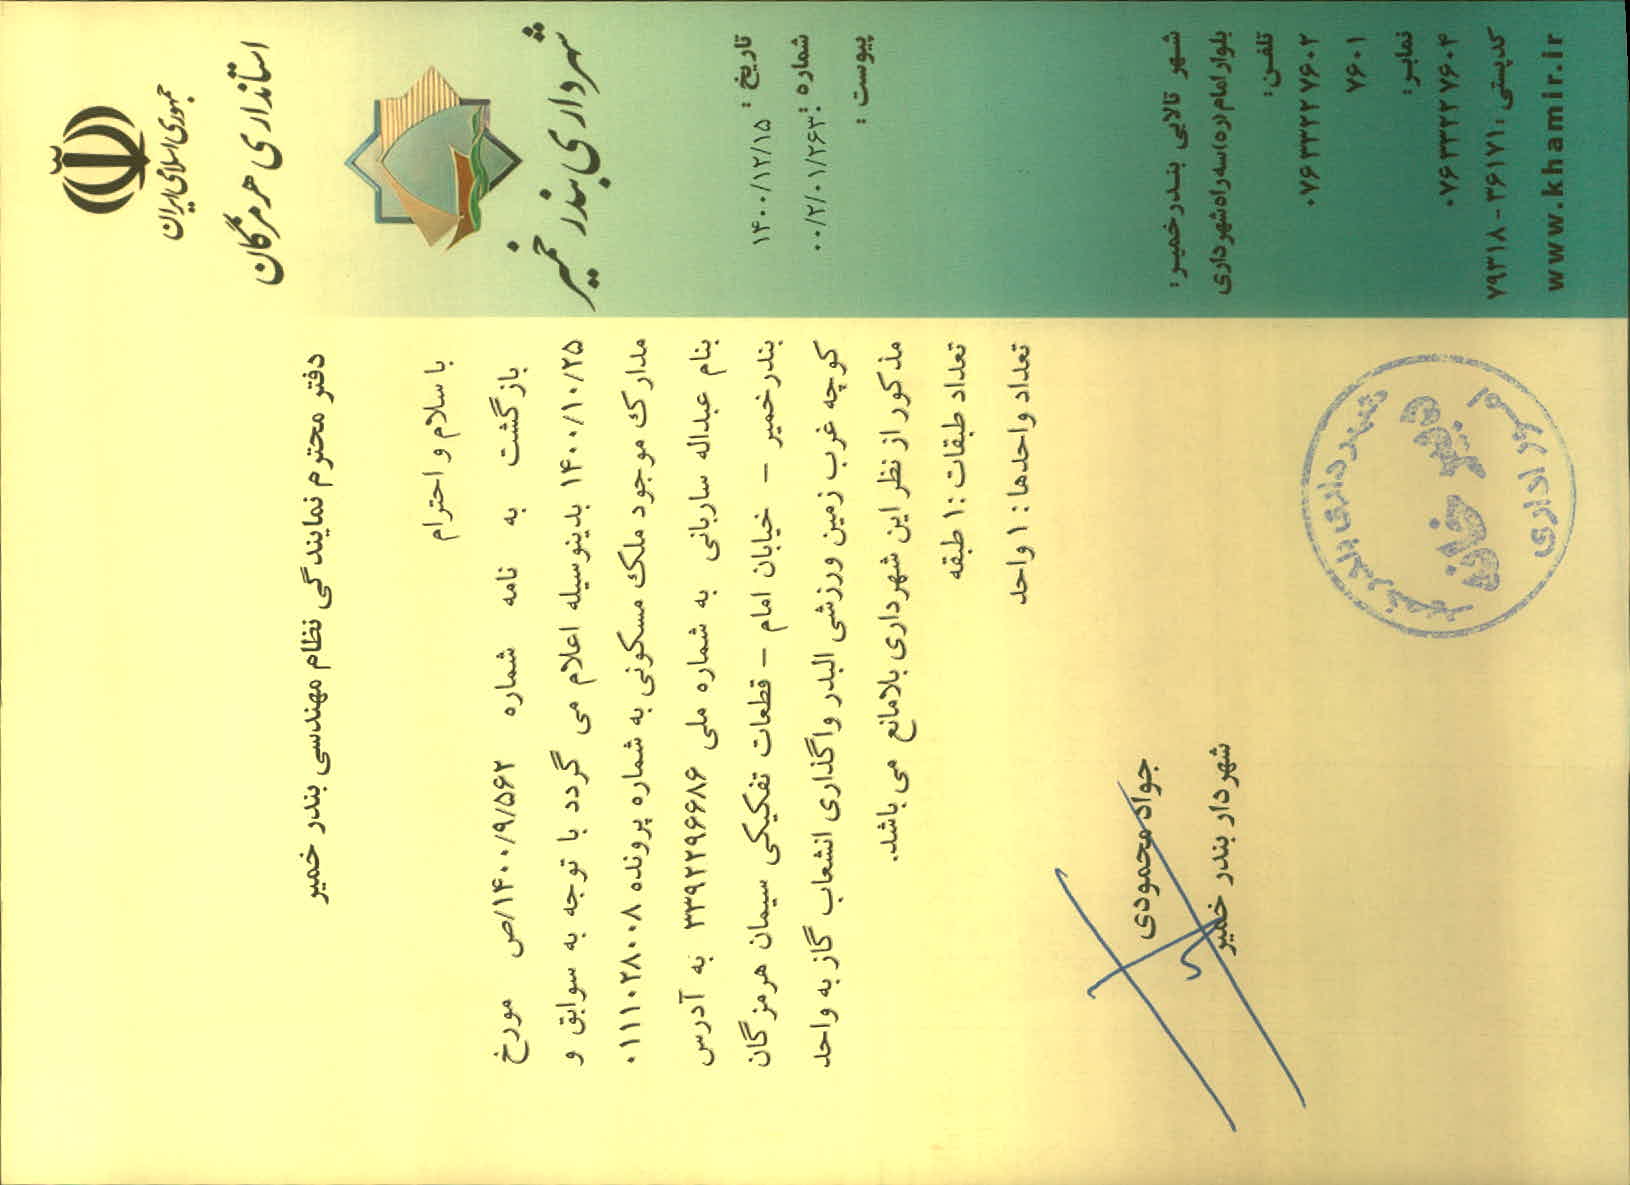 جمهوری اسلامی ایران
استانداری هرمزگان
شهرداری بندر خمیر
تاریخ : ۱۴۰۰/۱۲/۱۵
شماره : ۰۰/۲/۰۱/۲۶۳
پیوست :
دفتر محترم نمایندگی نظام مهندسی بندر خمیر
با سلام و احترام
بازگشت به نامه شماره ۱۴۰۰/۹/۵۶۲/ص مورخ
۱۴۰۰/۱۰/۲۵ بدینوسیله اعلام می گردد با توجه به سوابق و
مدارک موجود ملک مسکونی به شماره پرونده ۰۱۱۱۰۲۸۰۰۸
بنام عبداله ساربانی به شماره ملی ۳۳۹۲۲۹۶۶۸۶ به آدرس
بندرخمیر – خیابان امام – قطعات تفکیکی سیمان هرمزگان
کوچه غرب زمین ورزشی البدر واگذاری انشعاب گاز به واحد
مذکور از نظر این شهرداری بلامانع می باشد.
تعداد طبقات :۱ طبقه
تعداد واحدها: ۱ واحد
جواد محمودی
شهردار بندر خمیر
شهرداری بندر خمیر
دبیر خانه
امور اداری
شهر تالابی بندرخمیر:
بلوار امام (ره) سه راه شهرداری
تلفن:
۰۷۶۳۳۲۲۷۶۰۲
۷۶۰۱
نمابر:
۰۷۶۳۳۲۲۷۶۰۴
کدپستی: ۳۶۱۷۱ - ۷۹۳۱۸
www.khamir.ir